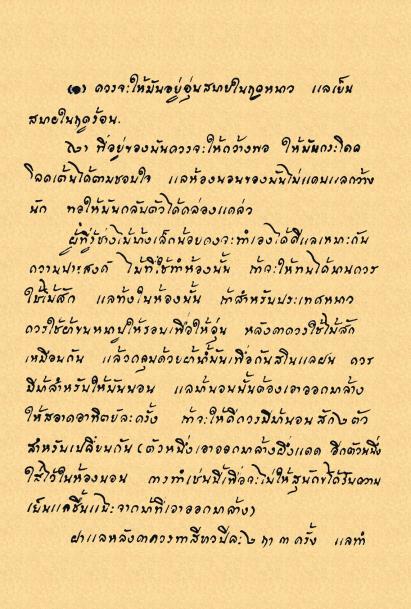 (๑) ควรจะให้มันอยู่อุ่นสบายในฤดูหนาว แลเย็น
สบายในฤดูร้อน.
(๒) ที่อยู่ของมันควรจะให้กว้างพอ ให้มันกระโดด
โลดเต้นได้ตามชอบใจ แลห้องนอนของมันไม่แคบแลกว้าง
นัก พอให้มันกลับตัวได้คล่องแคล่ว
ผู้ที่รู้ช่างไม้บ้างเล็กน้อยคงจะทำเองได้ดีแลเหมาะกับ
ความประสงค์ ไม้ที่ใช้ทำห้องนั้น ถ้าจะให้ทนได้นานควร
ใช้ไม้สัก แลทั้งในห้องนั้น ถ้าสำหรับประเทศหนาว
ควรใช้ผ้าขนหนาปูให้รอบเพื่อให้อุ่น หลังคาควรใช้ไม้สัก
เหมือนกัน แล้วคลุมด้วยผ้าน้ำมันเพื่อกันสนิแลฝน ควร
มีม้าสำหรับให้มันนอน แลม้านอนนั้นต้องเอาออกมาล้าง
ให้สอาดอาทิตย์ละครั้ง ถ้าจะให้ดีควรมีม้านอนสัก ๒ ตัว
สำหรับเปลี่ยนกัน (ตัวหนึ่งเอาออกมาล้างผึ่งแดด อีกตัวหนึ่ง
ใส่ไว้ในห้องนอน การทำเช่นนี้เพื่อจะไม่ให้สุนักข์ได้รับความ
เย็นแลชื้นแฉะจากม้าที่เอาออกมาล้าง)
ฝาแลหลังคาควรทาสีทวปีละ ๒ ฤา ๓ ครั้ง แลทำ